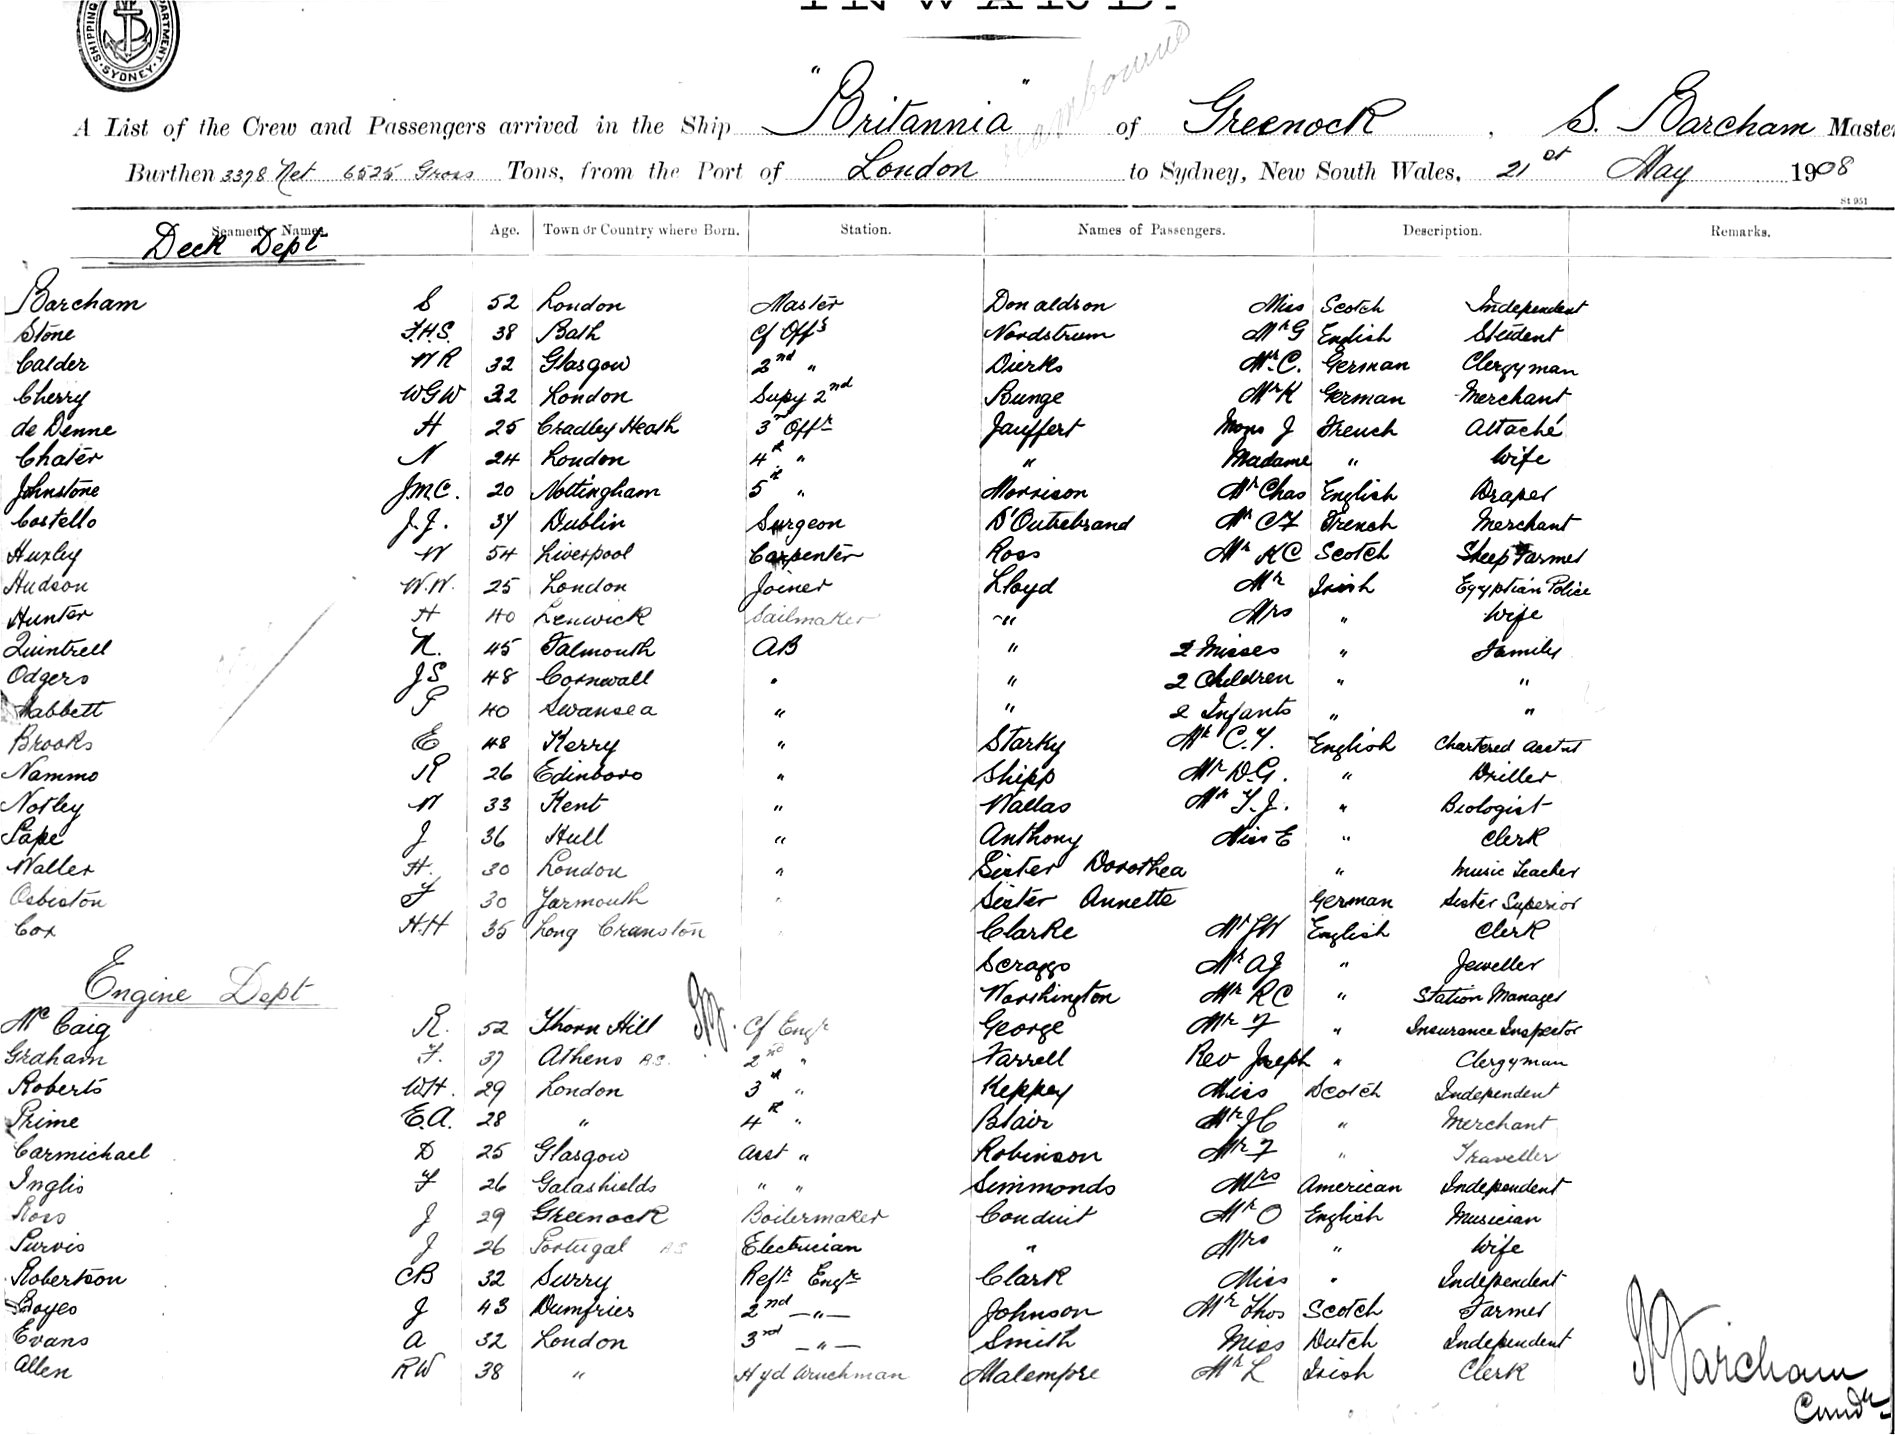 INWARD.
SHIPPING DEPARTMENT SYDNEY
A List of the Crew and Passengers arrived in the Ship "Britannia" of Greenock, S. Barcham Master
Burthen 3378 Net 6525 Gross Tons, from the Port of London to Sydney, New South Wales, 21st May 1908
St 951
Seamen's Names. Age. Town or Country where Born. Station. Names of Passengers. Description. Remarks.
Deck Dept
Barcham S 52 London Master Donaldson Miss Scotch Independent
Stone F.H.S. 38 Bath Cf Offr Nordstrum Mr G English Student
Calder W R 32 Glasgow 2nd " Dierks Mr. C. German Clergyman
Cherry WGW 32 London Supy 2nd Bunge Mr K German Merchant
de Denne H 25 Cradley Heath 3r Offr Jauffert Mons J French Attaché
Chater N 24 London 4th " " Madame " Wife
Johnstone J.M.C. 20 Nottingham 5th " Morrison Mr Chas English Draper
Costello J.J. 37 Dublin Surgeon D'Outrebrand Mr CF French Merchant
Huxley W 54 Liverpool Carpenter Ross Mr KC Scotch Sheep Farmer
Hudson W.W. 25 London Joiner Lloyd Mr Irish Egyptian Police
Hunter H 40 Lenwick Sailmaker " Mrs " Wife
Quintrell N. 45 Falmouth AB " 2 Misses " Family
Odgers JS 48 Cornwall " " 2 Children " "
P 40 Swansea " " 2 Infants " "
Brooks E 48 Kerry " Starky Mr C.Y. English Chartered Acctnt
Nammo R 26 Edinboro " Shipp Mr D.G. " Driller
Notley W 33 Kent " Wallas Mr T.J. " Biologist
Pape J 36 Hull " Anthony Miss E " Clerk
Waller H. 30 London " Sister Dorothea " Music Teacher
Osbiston F 30 Yarmouth " Sister Annette German Sister Superior
Cox H.H 35 Long Cranston " Clarke Mr JW English Clerk
Scraggs Mr AJ " Jeweller
Engine Dept Worshington Mr RC " Station Manager
McCaig R. 52 Thorn Hill Cf Engr George Mr F " Insurance Inspector
Graham F. 37 Athens 2nd " Farrell Rev Joseph " Clergyman
Roberts WH. 29 London 3rd " Keppey Miss Scotch Independent
Prime E.A. 28 " 4th " Blair Mr JC " Merchant
Carmichael D 25 Glasgow Asst " Robinson Mr F " Traveller
Inglis F 26 Galashields " " Simmonds Mrs American Independent
Ross J 29 Greenock Boilermaker Conduit Mr O English Musician
Purvis J 26 Portugal Electrician " Mrs " Wife
Robertson CB 32 Surry Refr Engr Clark Miss " Independent
Boyes J 43 Dumfries 2nd " Johnson Mr Thos Scotch Farmer
Evans A 32 London 3rd " Smith Miss Dutch Independent
Allen RW 38 " Hyd Winchman Malempre Mr L Irish Clerk
S Barcham
Comdr